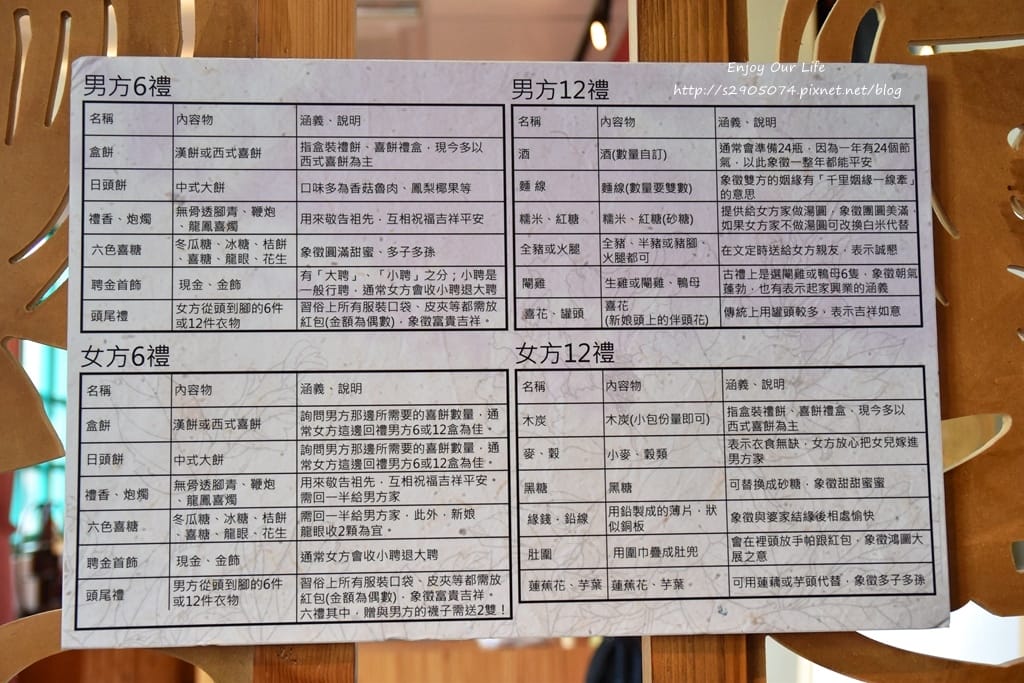 Enjoy Our Life
http://s2905074.pixnet.net/blog
男方6禮
名稱 內容物 涵義、說明
盒餅 漢餅或西式喜餅 指盒裝禮餅、喜餅禮盒，現今多以
西式喜餅為主
日頭餅 中式大餅 口味多為香菇魯肉、鳳梨椰果等
禮香、炮燭 無骨透腳青、鞭炮
、龍鳳喜燭 用來敬告祖先，互相祝福吉祥平安
六色喜糖 冬瓜糖、冰糖、桔餅
、喜糖、龍眼、花生 象徵圓滿甜蜜、多子多孫
聘金首飾 現金、金飾 有「大聘」、「小聘」之分；小聘是
一般行聘，通常女方會收小聘退大聘
頭尾禮 女方從頭到腳的6件
或12件衣物 習俗上所有服裝口袋、皮夾等都需放
紅包(金額為偶數)，象徵富貴吉祥。
男方12禮
名稱 內容物 涵義、說明
酒 酒(數量自訂) 通常會準備24瓶，因為一年有24個節
氣，以此象徵一整年都能平安
麵線 麵線(數量要雙數) 象徵雙方的姻緣有「千里姻緣一線牽」
的意思
糯米、紅糖 糯米、紅糖(砂糖) 提供給女方家做湯圓，象徵團圓美滿
如果女方家不做湯圓可改換白米代替
全豬或火腿 全豬、半豬或豬腳、
火腿都可 在文定時送給女方親友，表示誠懇
閹雞 生雞或閹雞、鴨母 古禮上是選閹雞或鴨母6隻，象徵朝氣
蓬勃，也有表示起家興業的涵義
喜花、罐頭 喜花
(新娘頭上的伴頭花) 傳統上用罐頭較多，表示吉祥如意
女方6禮
名稱 內容物 涵義、說明
盒餅 漢餅或西式喜餅 詢問男方那邊所需要的喜餅數量，通
常女方這邊回禮男方6或12盒為佳。
日頭餅 中式大餅 詢問男方那邊所需要的喜餅數量，通
常女方這邊回禮男方6或12盒為佳。
禮香、炮燭 無骨透腳青、鞭炮
、龍鳳喜燭 用來敬告祖先，互相祝福吉祥平安。
需回一半給男方家
六色喜糖 冬瓜糖、冰糖、桔餅
、喜糖、龍眼、花生 需回一半給男方家，此外，新娘
龍眼收2顆為宜。
聘金首飾 現金、金飾 通常女方會收小聘退大聘
頭尾禮 男方從頭到腳的6件
或12件衣物 習俗上所有服裝口袋、皮夾等都需放
紅包(金額為偶數)，象徵富貴吉祥。
六禮其中，贈與男方的襪子需送2雙！
女方12禮
名稱 內容物 涵義、說明
木炭 木炭(小包份量即可) 指盒裝禮餅、喜餅禮盒、現今多以
西式喜餅為主
麥、穀 小麥、穀類 表示衣食無缺，女方放心把女兒嫁進
男方家
黑糖 黑糖 可替換成砂糖，象徵甜甜蜜蜜
緣錢，鉛線 用鉛製成的薄片，狀
似銅板 象徵與婆家結緣後相處愉快
肚圍 用圍巾疊成肚兜 會在裡頭放手帕跟紅包，象徵鴻圖大
展之意
蓮蕉花、芋葉 蓮蕉花、芋葉 可用蓮藕或芋頭代替，象徵多子多孫